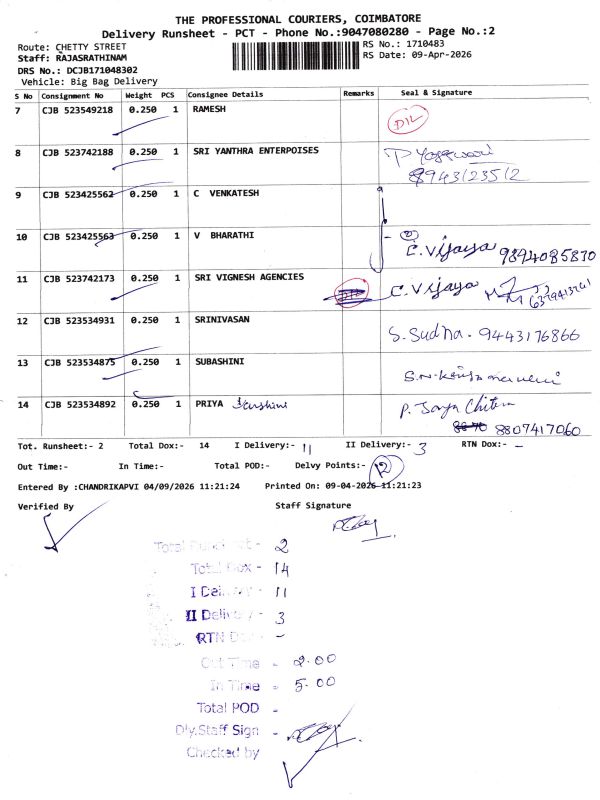 THE PROFESSIONAL COURIERS, COIMBATORE
Delivery Runsheet - PCT - Phone No.:9047080280 - Page No.:2
Route: CHETTY STREET
RS No.: 1710483
Staff: RAJASRATHINAM
RS Date: 09-Apr-2026
DRS No.: DCJB171048302
Vehicle: Big Bag Delivery
S No Consignment No Weight PCS Consignee Details Remarks Seal & Signature
7 CJB 523549218 0.250 1 RAMESH DIL
8 CJB 523742188 0.250 1 SRI YANTHRA ENTERPOISES
8943123512
9 CJB 523425562 0.250 1 C VENKATESH
10 CJB 523425563 0.250 1 V BHARATHI C. Vijaya 9894085830
11 CJB 523742173 0.250 1 SRI VIGNESH AGENCIES C. Vijaya
12 CJB 523534931 0.250 1 SRINIVASAN S. Sudha. 9443176866
13 CJB 523534875 0.250 1 SUBASHINI
14 CJB 523534892 0.250 1 PRIYA
8807417060
Tot. Runsheet:- 2 Total Dox:- 14 I Delivery:- 11 II Delivery:- 3 RTN Dox:- -
Out Time:- In Time:- Total POD:- Delvy Points:- 12
Entered By :CHANDRIKAPVI 04/09/2026 11:21:24 Printed On: 09-04-2026-11:21:23
Verified By Staff Signature
2
14
11
II 3
-
Out Time - 2.00
In Time - 5.00
Total POD -
Dly.Staff Sign -
Checked by